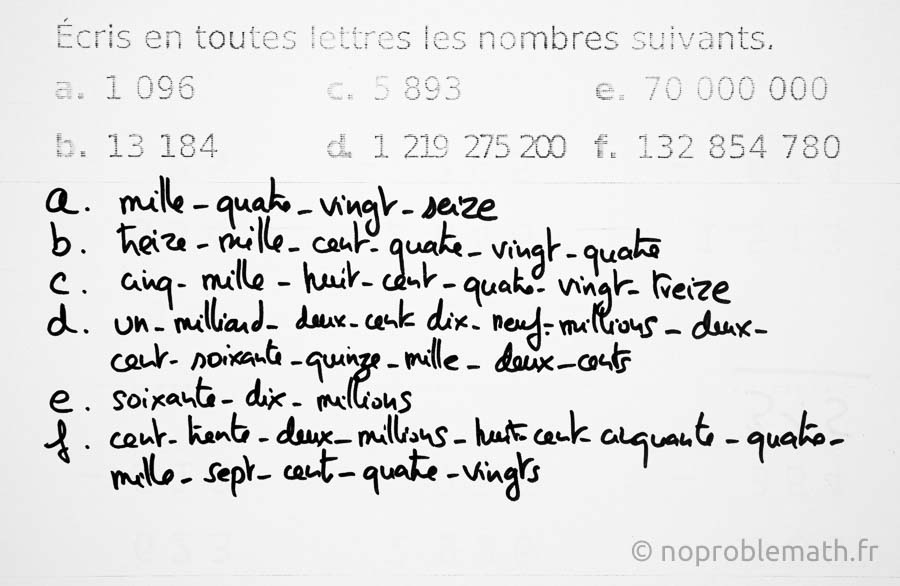 Écris en toutes lettres les nombres suivants.
a. 1 096 c. 5 893 e. 70 000 000
b. 13 184 d. 1 219 275 200 f. 132 854 780
a. mille-quatre-vingt-seize
b. treize-mille-cent-quatre-vingt-quatre
c. cinq-mille-huit-cent-quatre-vingt-treize
d. un-milliard-deux-cent dix-neuf-millions-deux-
cent-soixante-quinze-mille-deux-cents
e. soixante-dix-millions
f. cent-trente-deux-millions-huit-cent cinquante-quatre-
mille-sept-cent-quatre-vingts
© noproblemath.fr